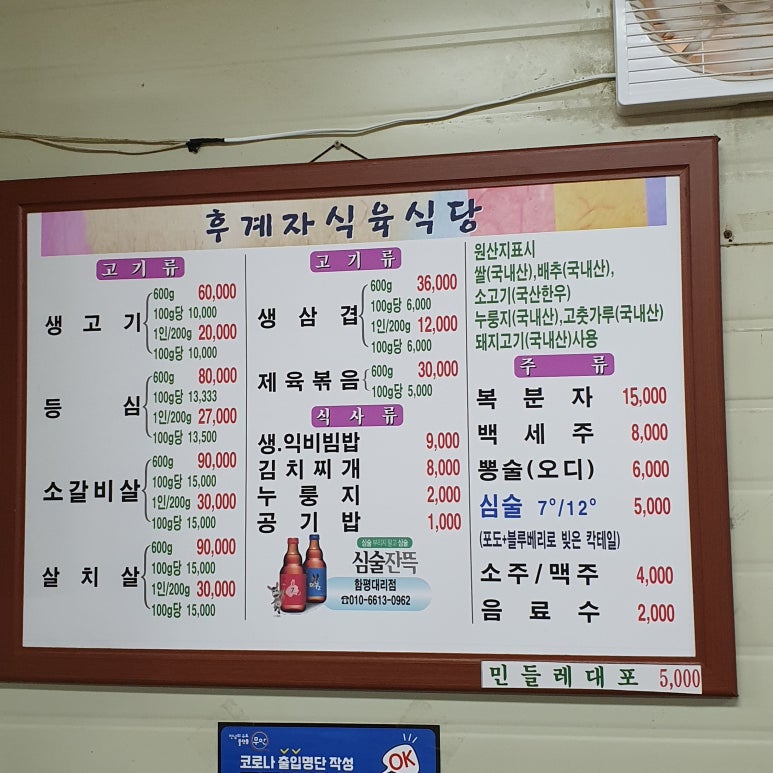 후계자식육식당
고기류
생고기
600g 60,000
100g당 10,000
1인/200g 20,000
100g당 10,000
등심
600g 80,000
100g당 13,333
1인/200g 27,000
100g당 13,500
소갈비살
600g 90,000
100g당 15,000
1인/200g 30,000
100g당 15,000
살치살
600g 90,000
100g당 15,000
1인/200g 30,000
100g당 15,000
고기류
생삼겹
600g 36,000
100g당 6,000
1인/200g 12,000
100g당 6,000
제육볶음
600g 30,000
100g당 5,000
식사류
생.익비빔밥 9,000
김치찌개 8,000
누룽지 2,000
공기밥 1,000
심술 부리지 말고 심술
심술잔뜩
함평대리점
☎010-6613-0962
원산지표시
쌀(국내산),배추(국내산),
소고기(국산한우)
누룽지(국내산),고춧가루(국내산)
돼지고기(국내산)사용
주류
복분자 15,000
백세주 8,000
뽕술(오디) 6,000
심술 7°/12° 5,000
(포도+블루베리로 빚은 칵테일)
소주/맥주 4,000
음료수 2,000
민들레대포 5,000
무안
코로나 출입명단 작성
OK